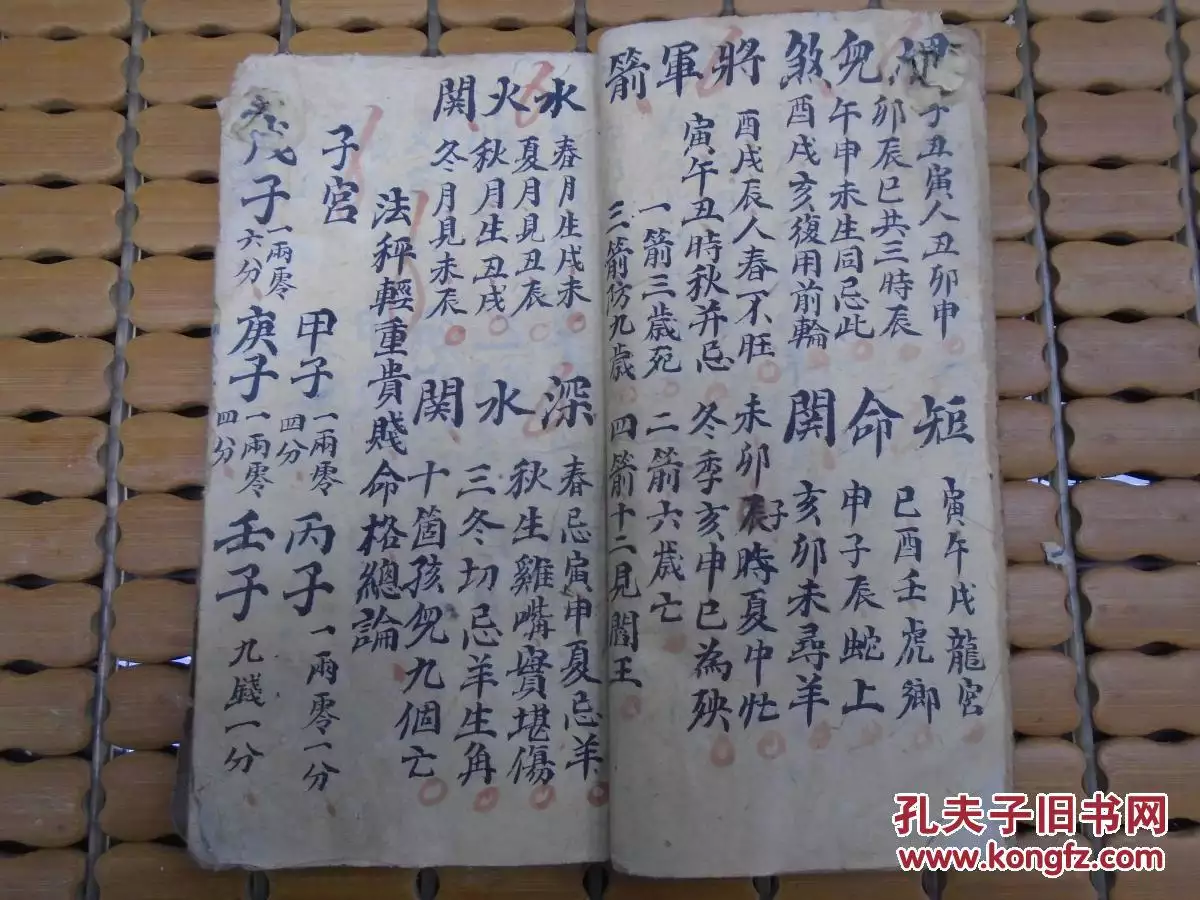 兒煞
子丑寅人丑卯申
卯辰巳共三時辰
午申未生同忌此
酉戌亥復用前輪
將軍箭
酉戌辰人春不旺
未卯辰子時夏中忙
寅午丑時秋并忌
冬季亥申巳為殃
一箭三歲死
二箭六歲亡
三箭防九歲
四箭十二見閻王
短命関
寅午戌龍宮
巳酉壬虎鄉
申子辰蛇上
亥卯未尋羊
水火関
春月生戌未
夏月見丑辰
秋月生丑戌
冬月見未辰
深水関
春忌寅申夏忌羊
秋生雞嘴實堪傷
三冬切忌羊生角
十箇孩兒九個亡
法秤輕重貴賤命格總論
子宮
甲子
一兩零
四分
丙子
一兩零一分
戊子
一兩零
六分
庚子
一兩零
四分
壬子
九錢一分
孔夫子旧书网
www.kongfz.com